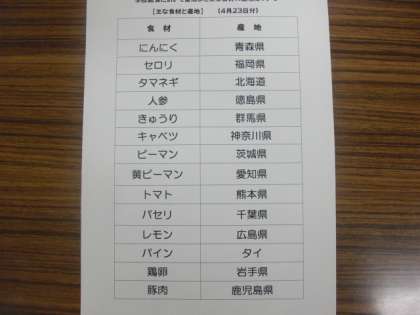 【主な食材と産地】 (4月23日分)
食材 産地
にんにく 青森県
セロリ 福岡県
タマネギ 北海道
人参 徳島県
きゅうり 群馬県
キャベツ 神奈川県
ピーマン 茨城県
黄ピーマン 愛知県
トマト 熊本県
パセリ 千葉県
レモン 広島県
パイン タイ
鶏卵 岩手県
豚肉 鹿児島県